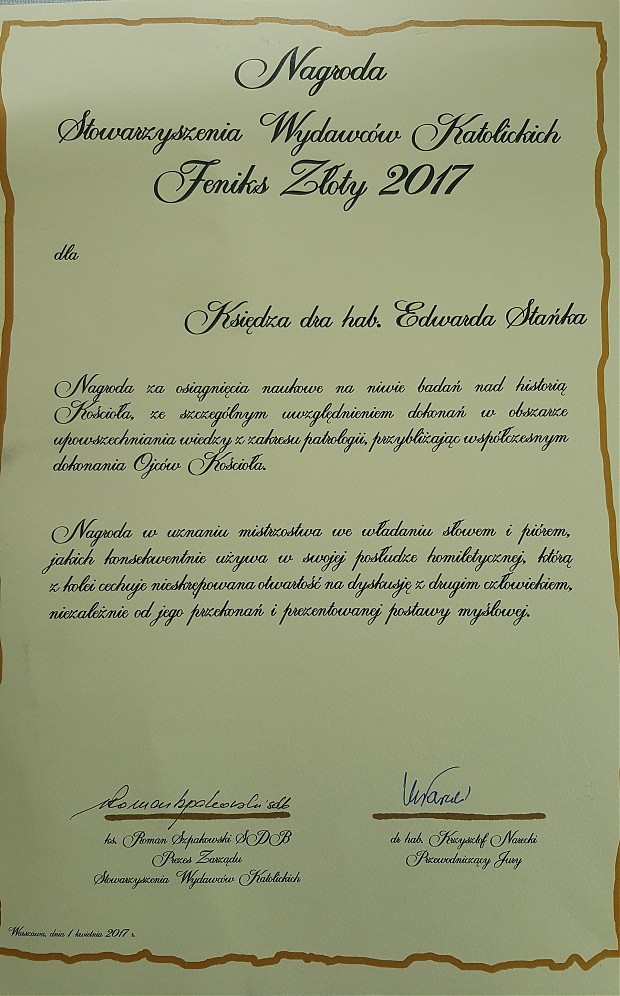 Nagroda
Stowarzyszenia Wydawców Katolickich
Feniks Złoty 2017
dla
Księdza dra hab. Edwarda Stańka
Nagroda za osiągnięcia naukowe na niwie badań nad historią
Kościoła, ze szczególnym uwzględnieniem dokonań w obszarze
upowszechniania wiedzy z zakresu patrologii, przybliżając współczesnym
dokonania Ojców Kościoła.
Nagroda w uznaniu mistrzostwa we władaniu słowem i piórem,
jakich konsekwentnie używa w swojej posłudze homiletycznej, którą
z kolei cechuje nieskrępowana otwartość na dyskusję z drugim człowiekiem,
niezależnie od jego przekonań i prezentowanej postawy myślowej.
Roman Szpakowski sdb
ks. Roman Szpakowski SDB
Prezes Zarządu
Stowarzyszenia Wydawców Katolickich
dr hab. Krzysztof Narecki
Przewodniczący Jury
Warszawa, dnia 1 kwietnia 2017 r.